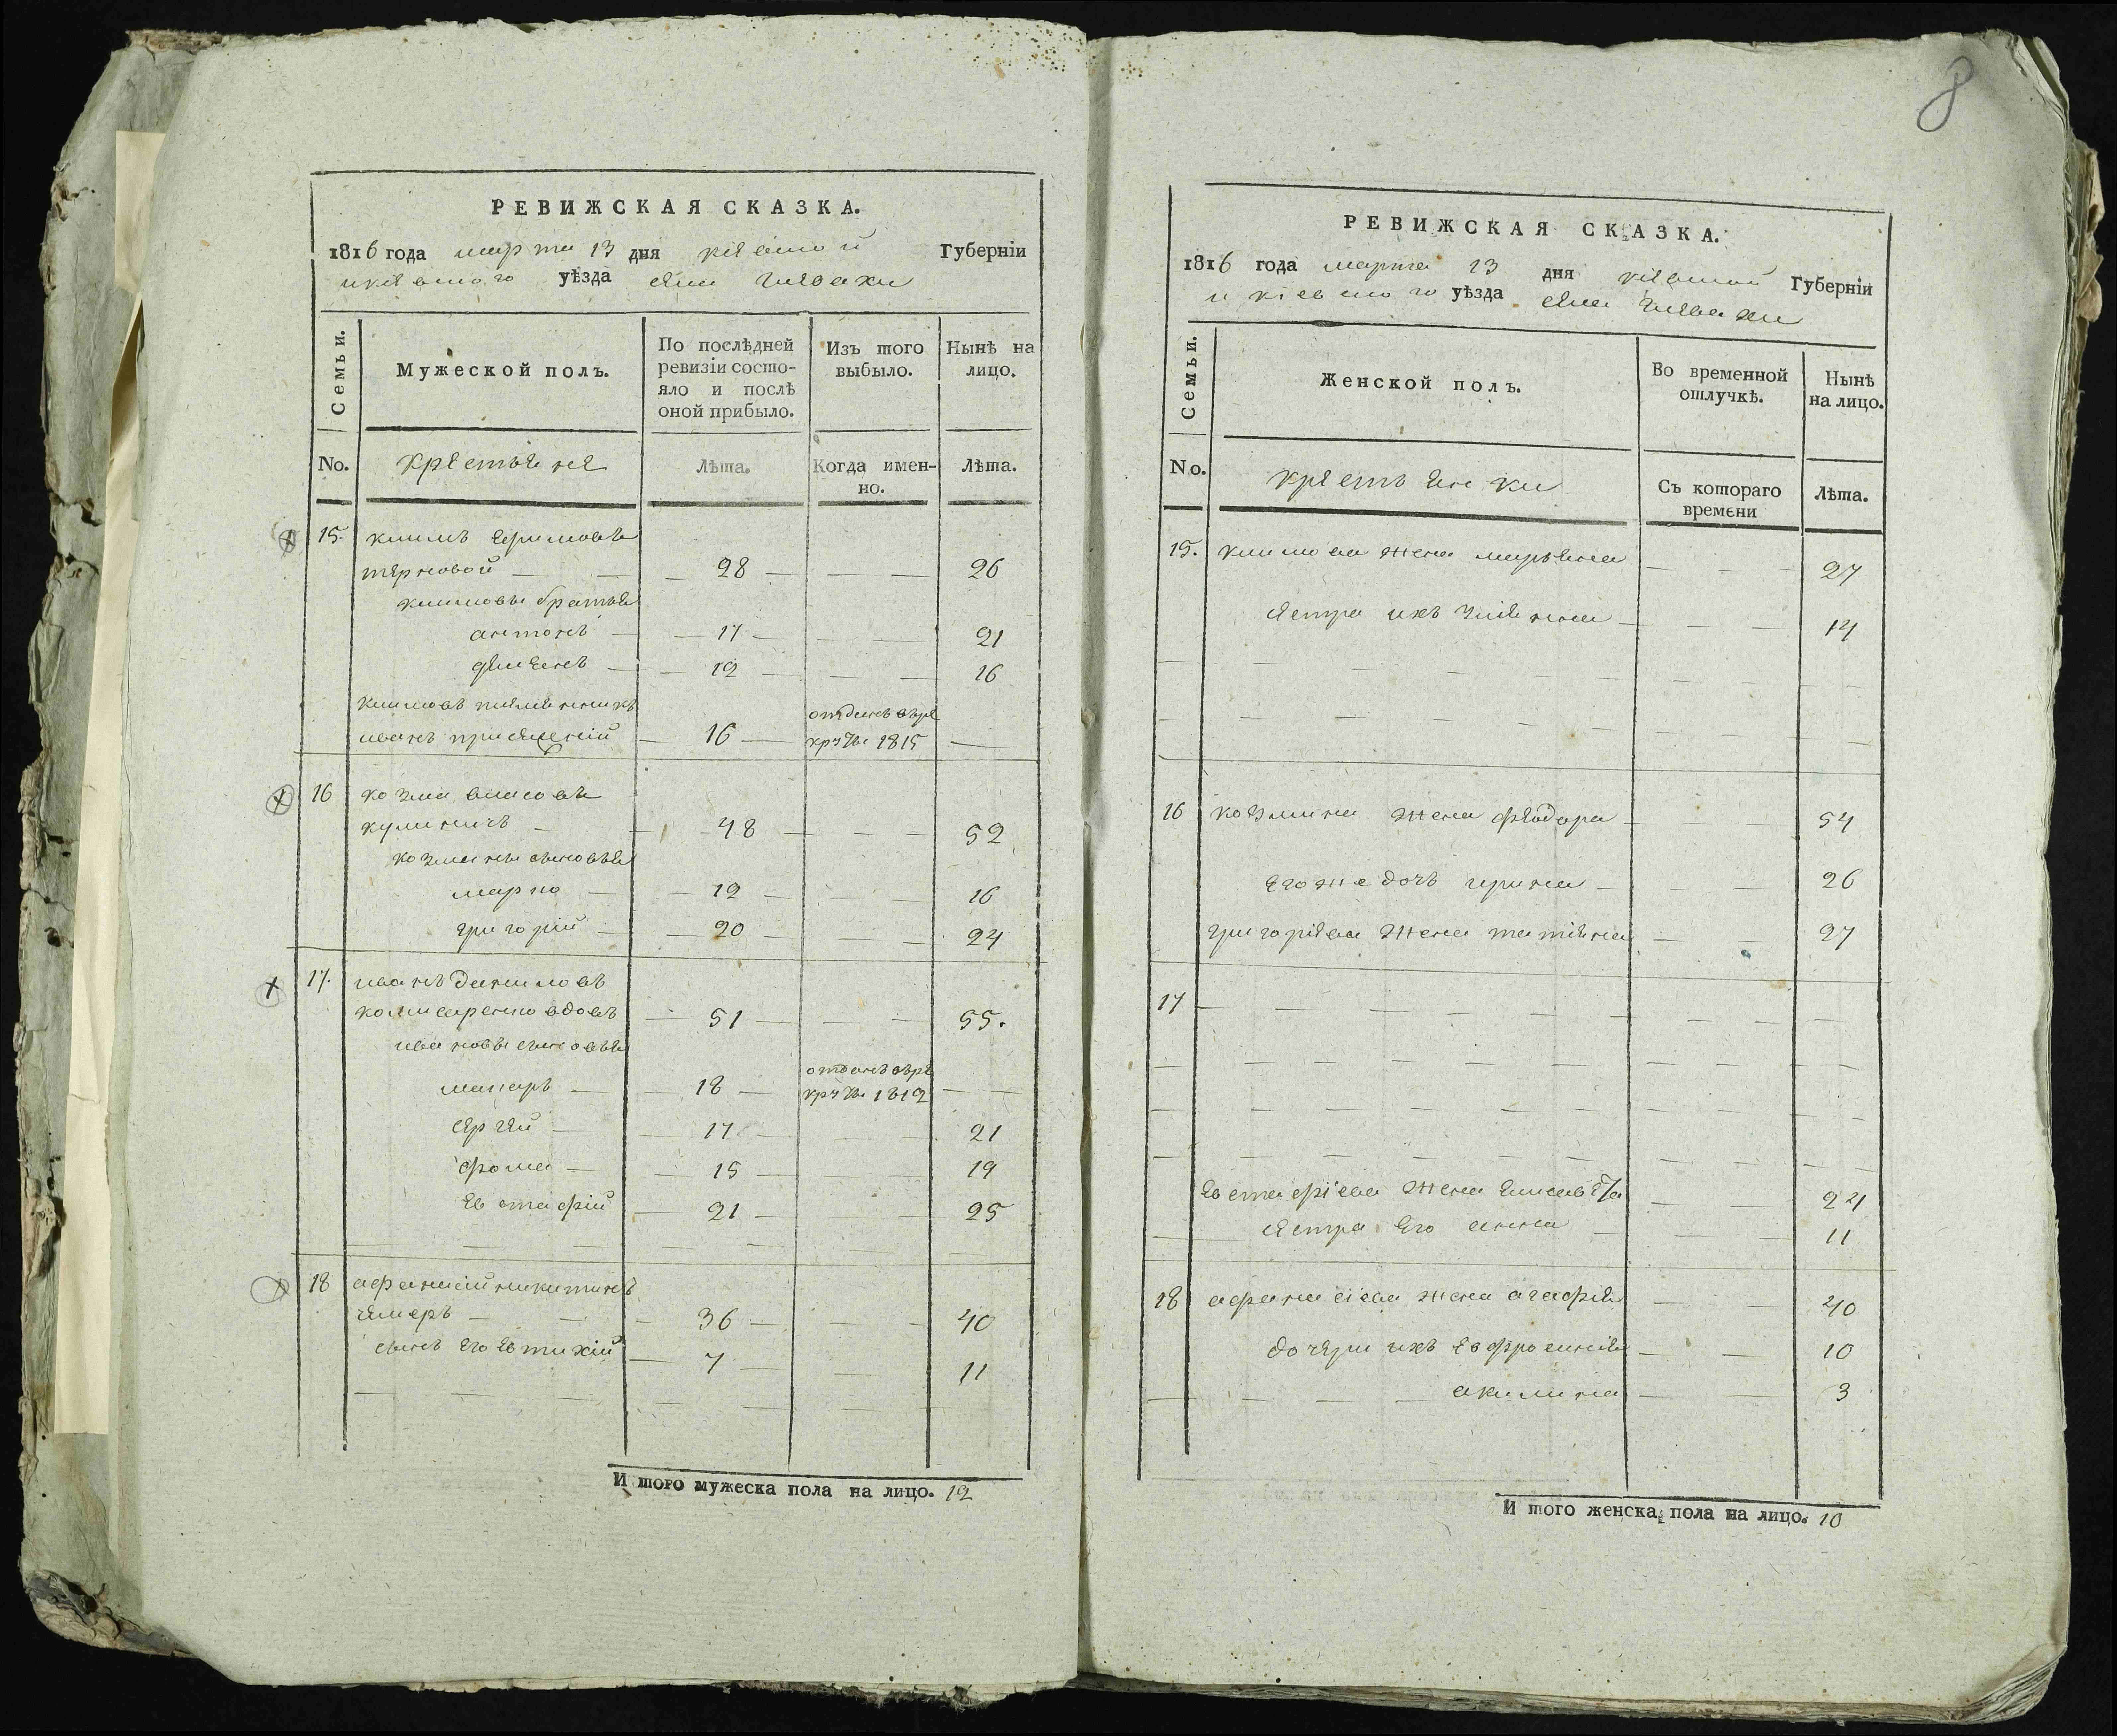 8
РЕВИЖСКАЯ СКАЗКА.
1816 года марта 13 дня кіевской Губерніи
и кіевского уѣзда села Глевахи
Семьи.
Мужеской полъ.
По послѣдней ревизіи состо-
яло и послѣ
оной прибыло.
Изъ того
выбыло.
Нынѣ на
лицо.
No.
крестьяне
Лѣта.
Когда имен-
но.
Лѣта.
15. климъ
терновой 28 26
климовы братья
антонъ 17 21
демянъ 12 16
климовъ племенникъ отданъ въ ре
иванъ 16 круты 1815
16 козма власовъ
кулиничъ 48 52
козмины сыновья
марко 12 16
григорій 20 24
17. иванъ даниловъ
комисаренко вдовъ 51 55.
ивановы сыновья
макаръ 18 отданъ въ ре
круты 1812
сергей 17 21
фома 15 19
евстафій 21 25
18 афанасій никитинъ
чемеръ 36 40
сынъ его евтихій 7 11
И того мужеска пола на лицо. 12
РЕВИЖСКАЯ СКАЗКА.
1816 года марта 13 дня кіевской Губерніи
и кіевского уѣзда села Глевахи
Семьи.
Женской полъ.
Во временной
отлучкѣ.
Нынѣ
на лицо.
No.
крестьянки
Съ котораго
времени
Лѣта.
15. климова жена марьяна 27
сестра ихъ 14
16 козмина жена феодора 54
его же дочь ирина 26
григоріева жена татіяна 27
17
евстафіева жена елисавета 24
сестра его анна 11
18 афанасіева жена агафія 40
дочери ихъ евфросинія 10
акилина 3
И того женска пола на лицо. 10